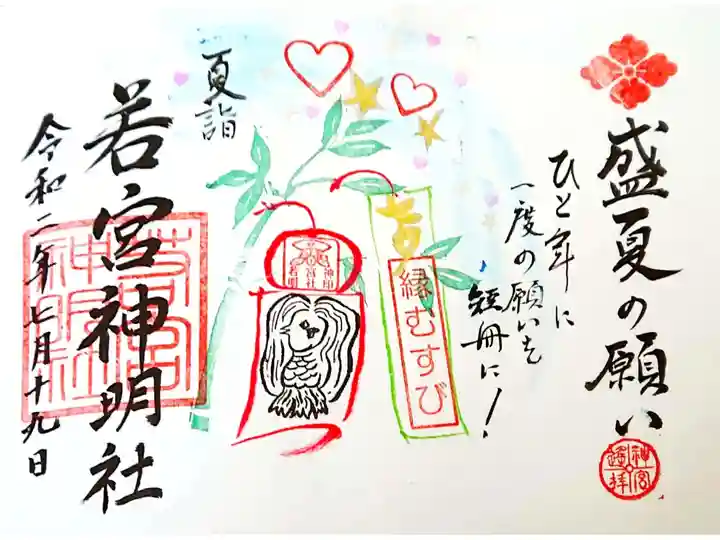 盛夏の願い
神宮
遥拝
ひと年に
一度の願いを
短冊に!
吉
縁むすび
夏詣
若宮神明社
若宮
神明社
令和二年七月十九日